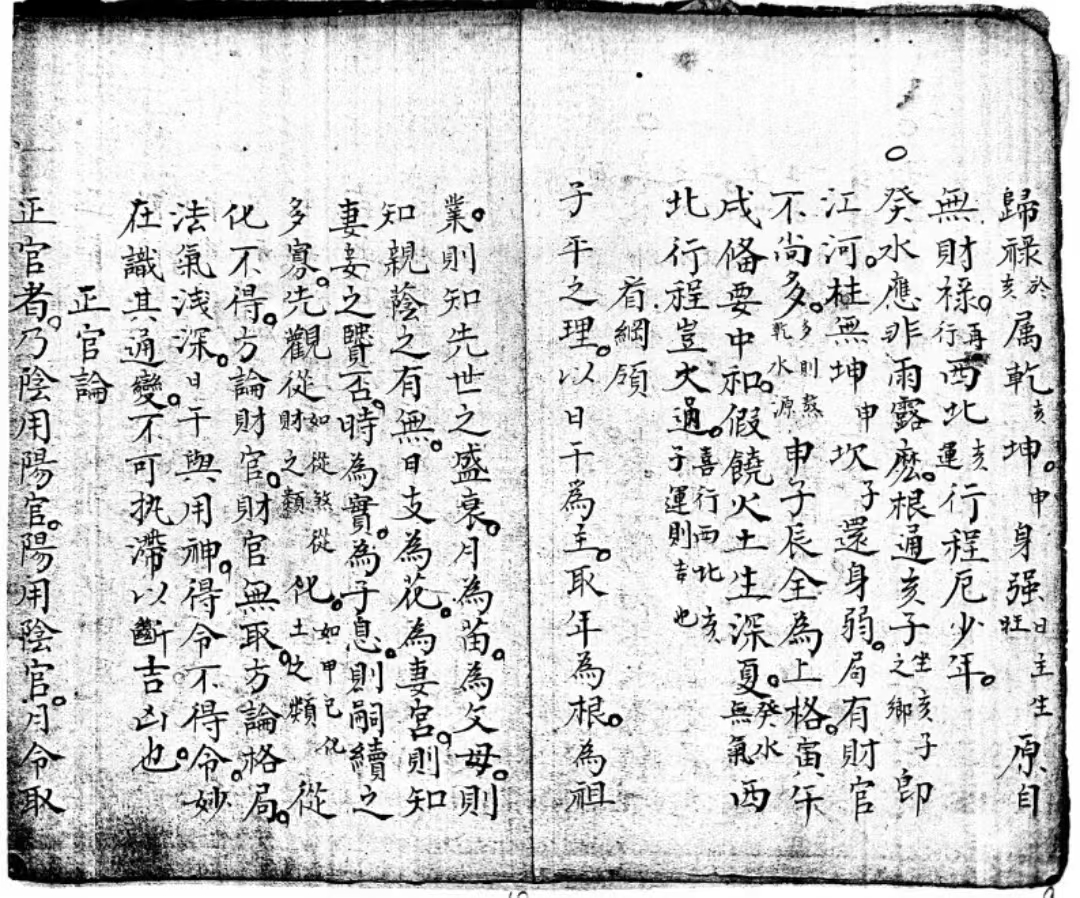 歸祿於亥属乾亥坤。申身強日主生旺原自
無財祿。再行西北亥運行程厄少年。
癸水應非雨露麽。根通亥子坐亥子之鄉即
江河。柱無坤申坎子還身弱。局有財官
不尚多。多則熬乾水源申子辰全為上格。寅午
戌俻要中和。假饒火土生深夏。癸水無氣西
北行程豈大過。喜行西北亥子運則吉也
看綱領
子平之理。以日干為主。取年為根。為祖
業。則知先世之盛衰。月為苗。為父母。則
知親蔭之有無。日支為花。為妻宮。則知
妻妾之賢否。時為實。為子息。則嗣續之
多寡。先觀從如從煞從財之類化。如甲己化土之類從
化不得。方論財官。財官無取。方論格局。
法氣浅深。日干與用神。得令不得令。妙
在識其通變。不可执滯以斷吉凶也。
正官論
正官者。乃陰用陽官。陽用陰官。月令取
10
9